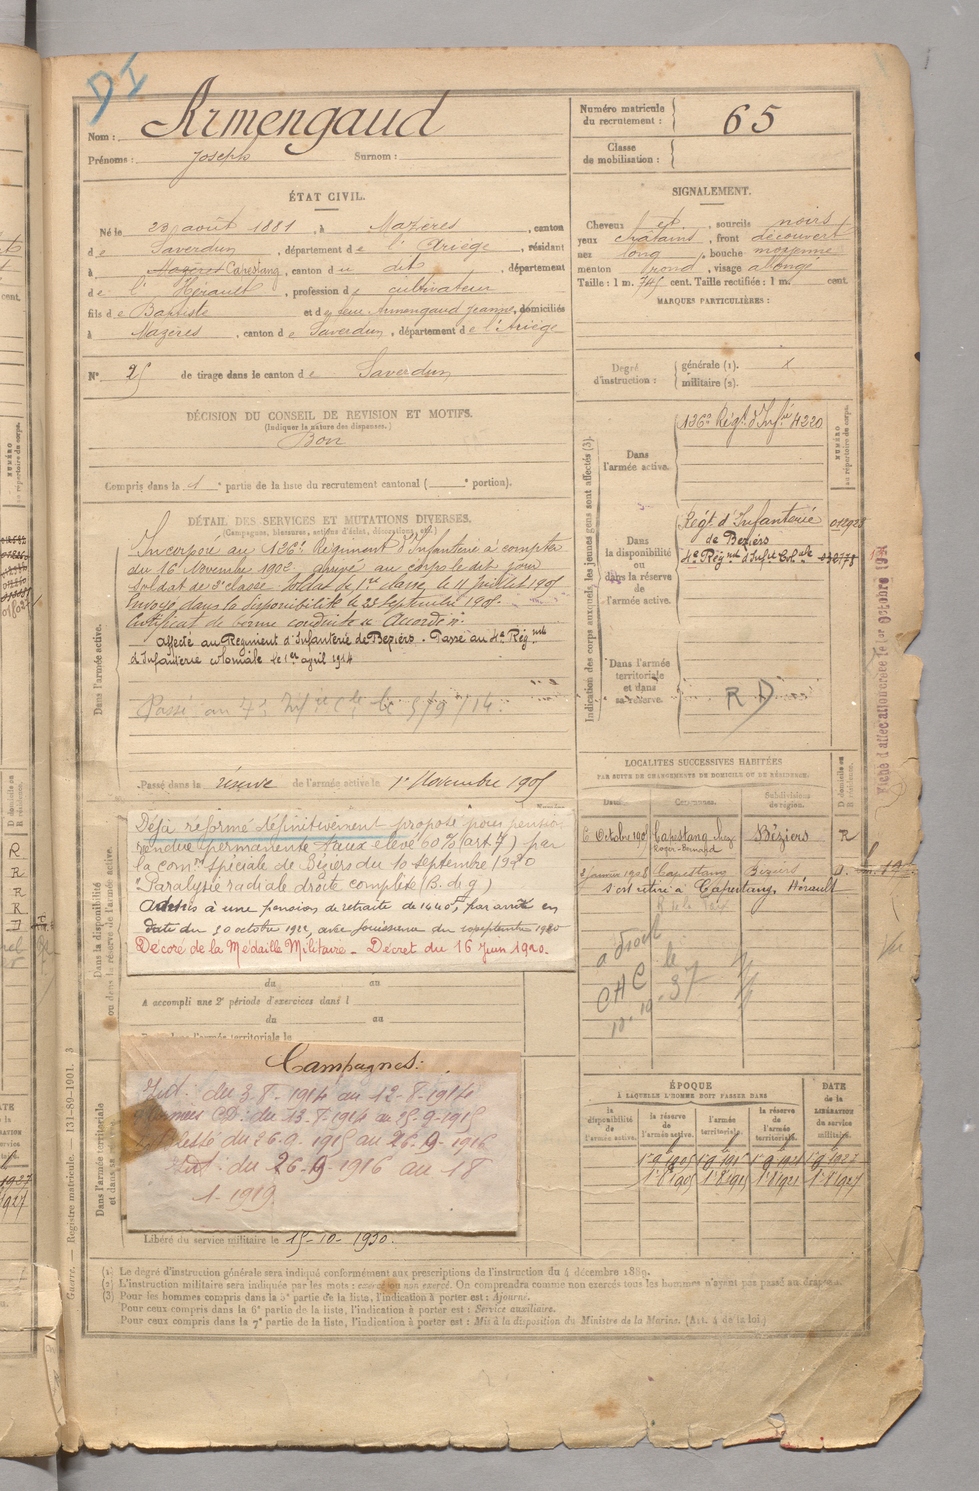 DI
Nom : Armengaud
Prénoms : Joseph Surnom :
Numéro matricule du recrutement : 65
Classe de mobilisation :
ÉTAT CIVIL.
Né le 23 août 1881, à Mazères, canton
de Saverdun, département de l'Ariège, résidant
à Mazères Capestang, canton du dit, département
de l'Hérault, profession de cultivateur
fils de Baptiste et de feue Armengaud Jeanne, domiciliés
à Mazères, canton de Saverdun, département de l'Ariège
N° 25 de tirage dans le canton de Saverdun
DÉCISION DU CONSEIL DE REVISION ET MOTIFS.
(Indiquer la nature des dispenses.)
Bon
Compris dans la 1e partie de la liste du recrutement cantonal ( e portion).
SIGNALEMENT.
Cheveux et, sourcils noirs
yeux châtains, front découvert
nez long, bouche moyenne
menton rond, visage allongé
Taille : 1 m. 745 cent. Taille rectifiée : 1 m. cent.
MARQUES PARTICULIÈRES :
Degré d'instruction :
générale (1). x
militaire (2).
DÉTAIL DES SERVICES ET MUTATIONS DIVERSES.
(Campagnes, blessures, actions d'éclat, décorations, etc.)
Dans l'armée active.
Incorporé au 136e Régiment d'Infanterie à compter
du 16 Novembre 1902 arrivé au corps le dit jour
soldat de 2e classe. Soldat de 1re classe le 11 Juillet 1905
Envoyé dans la disponibilité le 23 septembre 1905.
Certificat de bonne conduite " Accordé ".
Affecté au Régiment d'Infanterie de Béziers. Passé au 4e Régmt
d'Infanterie coloniale le 1er avril 1914
Passé au 7e Infie Cle le 5/9/14.
Passé dans la réserve de l'armée active le 1er Novembre 1905
Indication des corps auxquels les jeunes gens sont affectés (3).
NUMÉRO au répertoire du corps.
Dans l'armée active.
136e Régt d'Infie 4220
Dans la disponibilité ou dans la réserve de l'armée active.
Régt d'Infanterie de Béziers 012928
4e Régmt d'Infie Colale
Dans l'armée territoriale et dans sa réserve.
R D
Fiche d'affec allouée le 1er Octobre 1931
LOCALITÉS SUCCESSIVES HABITÉES
PAR SUITE DE CHANGEMENTS DE DOMICILE OU DE RÉSIDENCE.
Dates. Communes. Subdivisions de région. D domicile ou R résidence.
Octobre 1905 Capestang chez Roger-Bernard Béziers R
2 janvier 1908 Capestang Béziers D.
s'est retiré à Capestang, Hérault
a droit
CHC le
10.10.37
Dans la disponibilité ou dans la réserve de l'armée active.
Déjà réformé définitivement proposé pour pension
rendue permanente (taux élevé 60% (art 7) par
la comon spéciale de Béziers du 10 septembre 1920
"Paralysie radiale droite complète (B. de g)
Admis à une pension de retraite de 1440f, par arrêté en
date du 30 octobre 1922, avec jouissance du 10 septembre 1920
Décoré de la Médaille Militaire - Décret du 16 Juin 1920.
du au
A accompli une 2e période d'exercices dans l
du au
Dans l'armée territoriale
Campagnes :
Int : du 3-8-1914 au 12-8-1914
Armées CD : du 13-8-1914 au 25-9-1915
Int blessé du 26-9-1915 au 25-9-1916
Int : du 26-9-1916 au 18
1-1919
Libéré du service militaire le 15-10-1930.
ÉPOQUE
À LAQUELLE L'HOMME DOIT PASSER DANS
la disponibilité de l'armée active. la réserve de l'armée active. l'armée territoriale. la réserve de l'armée territoriale.
DATE de la LIBÉRATION du service militaire.
(1) Le degré d'instruction générale sera indiqué conformément aux prescriptions de l'instruction du 4 décembre 1889.
(2) L'instruction militaire sera indiquée par les mots : exercé ou non exercé. On comprendra comme non exercés tous les hommes n'ayant pas passé au drapeau.
(3) Pour les hommes compris dans la 5e partie de la liste, l'indication à porter est : Ajourné.
Pour ceux compris dans la 6e partie de la liste, l'indication à porter est : Service auxiliaire.
Pour ceux compris dans la 7e partie de la liste, l'indication à porter est : Mis à la disposition du Ministre de la Marine. (Art. 4 de la loi.)
Guerre. — Registre matricule. — 131-89-1901. 3